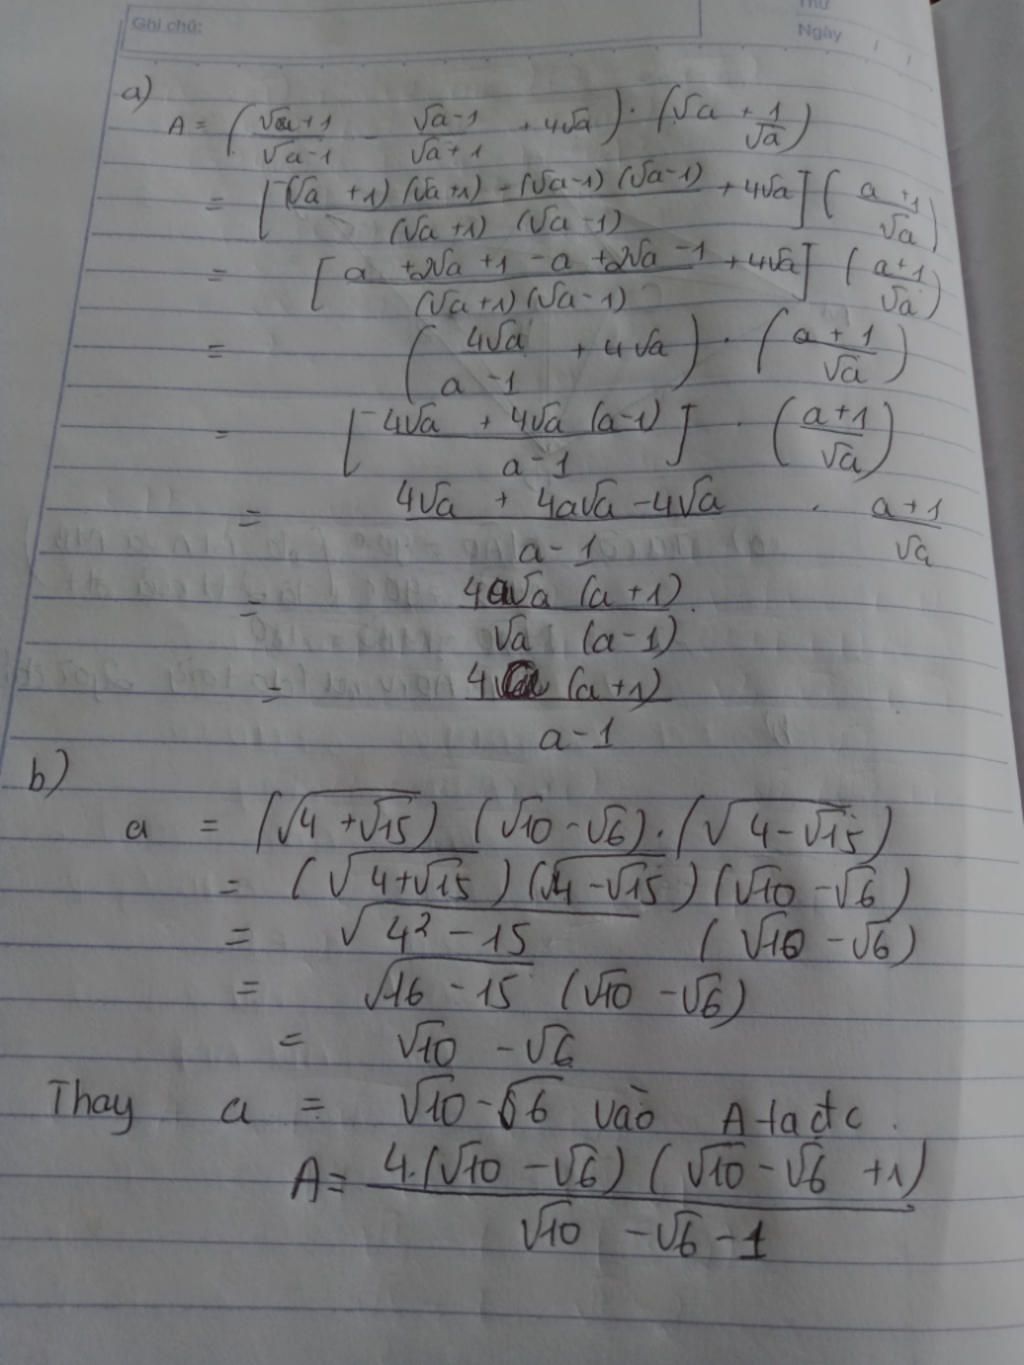 Ghi chú:
Thứ
Ngày / /
a)
A = ( (√a+1)/(√a-1) - (√a-1)/(√a+1) + 4√a ) . ( √a + 1/√a )
= [ ((√a +1) (√a+1) - (√a-1) (√a-1))/((√a+1) (√a-1)) + 4√a ] ( (a+1)/√a )
= [ (a +2√a +1 -a +2√a -1)/((√a+1) (√a-1)) + 4√a ] ( (a+1)/√a )
= ( 4√a/(a-1) + 4√a ) . ( (a+1)/√a )
= [ (4√a + 4√a (a-1))/(a-1) ] . ( (a+1)/√a )
= (4√a + 4a√a - 4√a)/(a-1) . (a+1)/√a
= (4a√a (a+1))/(√a (a-1))
= (4a (a+1))/(a-1)
b)
a = (√(4+√15)) (√10 - √6) . (√(4-√15))
= (√(4+√15)) (√(4-√15)) (√10 - √6)
= √(4² - 15) (√10 - √6)
= √(16 - 15) (√10 - √6)
= √10 - √6
Thay a = √10 - √6 vào A ta đc
A = (4.(√10 - √6) (√10 - √6 +1))/(√10 - √6 - 1)